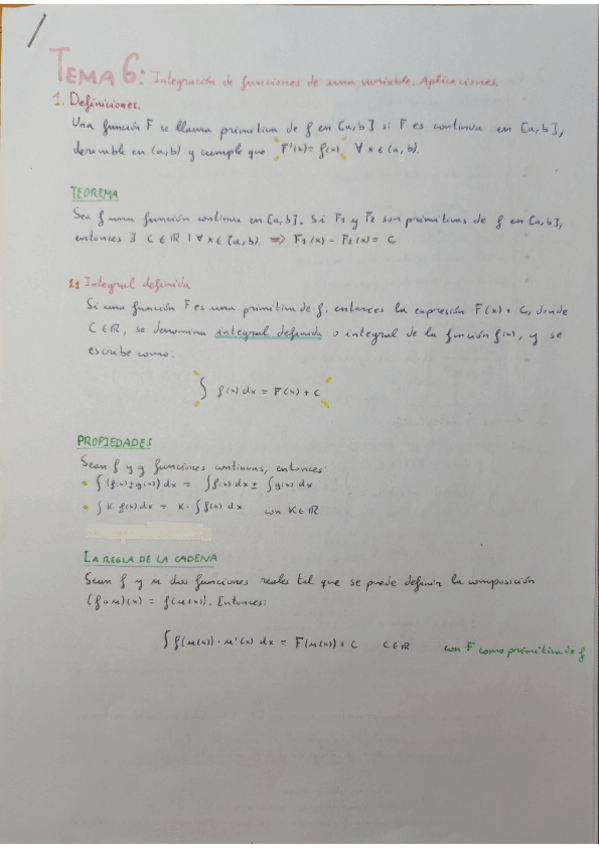 TEMA 6: Integración de funciones de una variable. Aplicaciones.
1. Definiciones.
Una función F se llama primitiva de f en [a,b] si F es continua en [a,b],
derivable en (a,b) y cumple que F'(x) = f(x) ∀ x ∈ (a,b).
TEOREMA
Sea f una función continua en [a,b]. Si F1 y F2 son primitivas de f en [a,b],
entonces ∃ C ∈ ℝ | ∀ x ∈ [a,b] ⇒ F1(x) - F2(x) = C
1.1 Integral definida
Si una función F es una primitiva de f, entonces la expresión F(x) + C, donde
C ∈ ℝ, se denomina integral definida o integral de la función f(x), y se
escribe como:
∫ f(x) dx = F(x) + C
PROPIEDADES
Sean f y g funciones continuas, entonces:
• ∫ (f(x) ± g(x)) dx = ∫ f(x) dx ± ∫ g(x) dx
• ∫ K · f(x) dx = K · ∫ f(x) dx con K ∈ ℝ
LA REGLA DE LA CADENA
Sean f y u dos funciones reales tal que se puede definir la composición
(f ∘ u)(x) = f(u(x)). Entonces:
∫ f(u(x)) · u'(x) dx = F(u(x)) + C C ∈ ℝ con F como primitiva de f